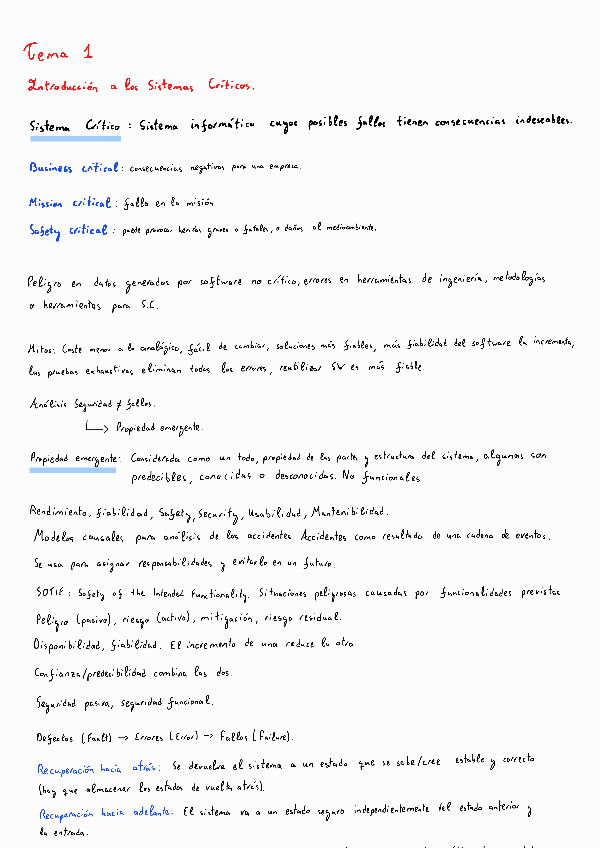 Tema 1
Introducción a los Sistemas Críticos.
Sistema Crítico : Sistema informático cuyos posibles fallos tienen consecuencias indeseables.
Business critical: consecuencias negativas para una empresa.
Mission critical: fallo en la misión
Safety critical: puede provocar heridas graves o fatales, o daños al medioambiente.
Peligro en datos generados por software no crítico, errores en herramientas de ingeniería, metodologías
o herramientas para S.C.
Mitos: Coste menor a lo analógico, fácil de cambiar, soluciones más fiables, más fiabilidad del software la incrementa,
las pruebas exhaustivas eliminan todos los errores, reutilizar SW es más fiable.
Análisis Seguridad ≠ fallos.
↳ Propiedad emergente.
Propiedad emergente: Considerada como un todo, propiedad de las partes y estructura del sistema, algunas son
predecibles, conocidas o desconocidas. No funcionales
Rendimiento, fiabilidad, Safety, Security, Usabilidad, Mantenibilidad.
Modelos causales para análisis de los accidentes Accidentes como resultado de una cadena de eventos.
Se usa para asignar responsabilidades y evitarlo en un futuro.
SOTIF: Safety of the Intended Functionality. Situaciones peligrosas causadas por funcionalidades previstas
Peligro (pasivo), riesgo (activo), mitigación, riesgo residual.
Disponibilidad, fiabilidad. El incremento de una reduce la otra
Confianza/predecibilidad combina las dos.
Seguridad pasiva, seguridad funcional.
Defectos (Fault) → Errores (Error) → Fallos (Failure).
Recuperación hacia atrás: Se devuelve el sistema a un estado que se sabe/cree estable y correcto
(hay que almacenar los estados de vuelta atrás).
Recuperación hacia adelante: El sistema va a un estado seguro independientemente del estado anterior y
la entrada.